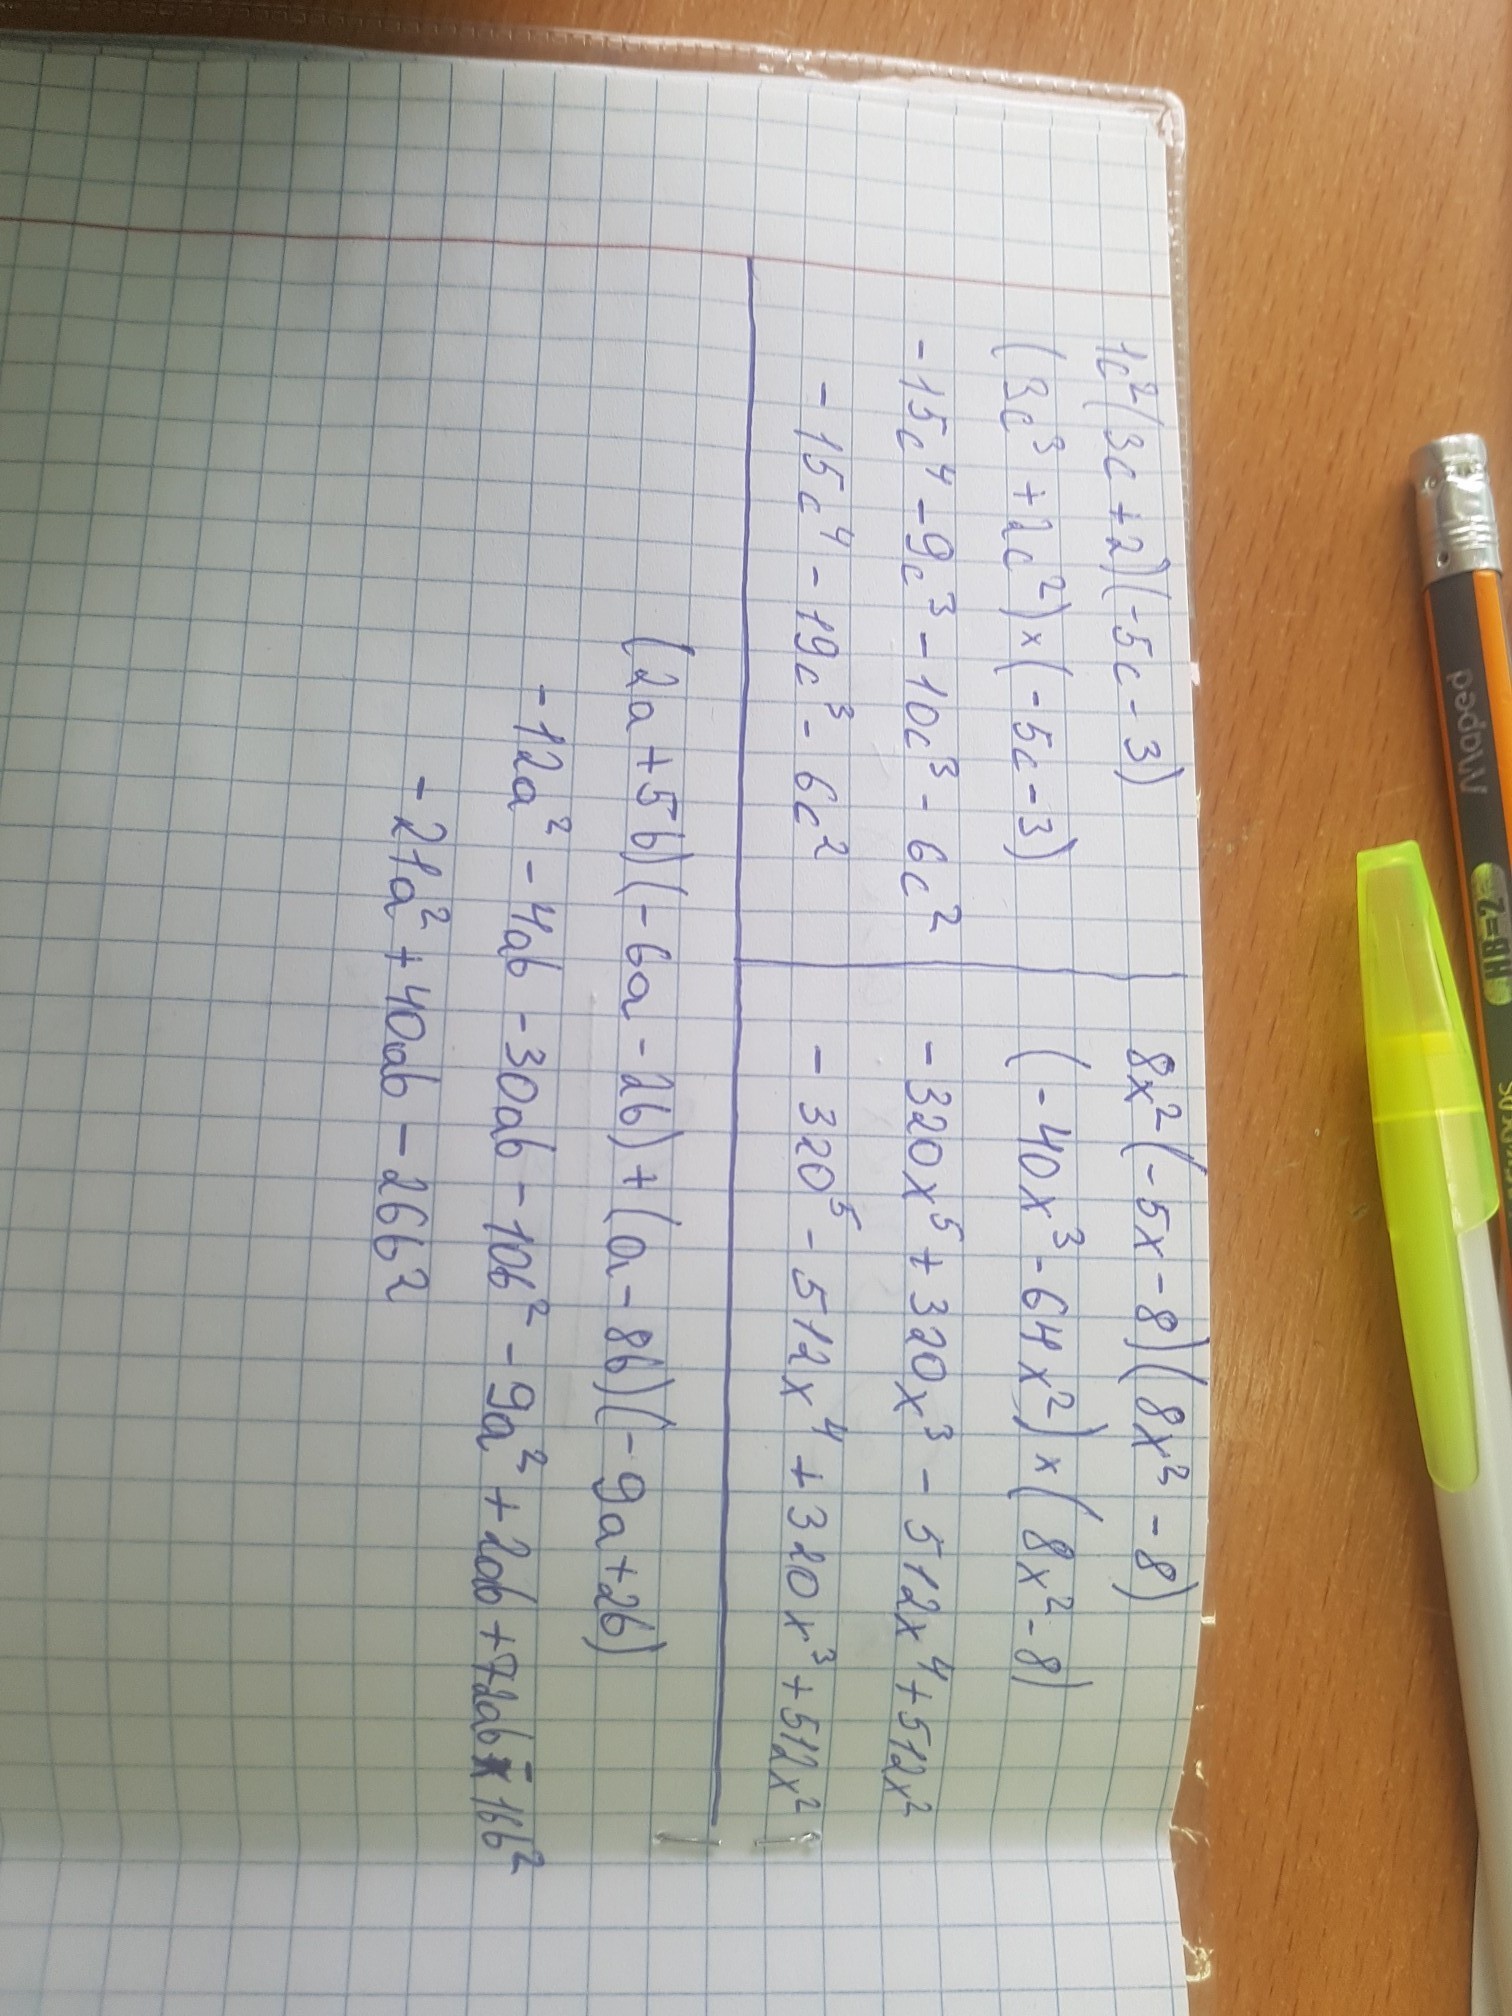 1c²(3c+2)(-5c-3)
(3c³+2c²)×(-5c-3)
-15c⁴-9c³-10c³-6c²
-15c⁴-19c³-6c²
8x²(-5x-8)(8x²-8)
(-40x³-64x²)×(8x²-8)
-320x⁵+320x³-512x⁴+512x²
-320⁵-512x⁴+320x³+512x²
(2a+5b)(-6a-2b)+(a-8b)(-9a+2b)
-12a²-4ab-30ab-10b²-9a²+2ab+72ab-16b²
-21a²+40ab-26b²
Maped
HB=2